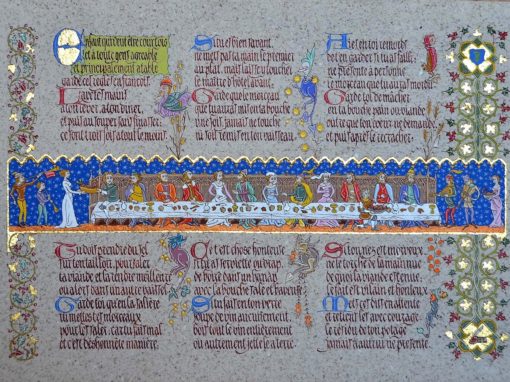 Enfant qui veut être courtois
et à toute gens agréable
et principalement à table
garde ces toutes en françois
Lave tes mains
à ton lever, à ton dîner
et puis au souper sans
ce sont trois fois à tout le moins.
Si tu es bien savant
ne mets pas ta main le premier
au plat, mais laisse y toucher
le maître d'hôtel avant.
Garde que le morceau
que tu auras mis en ta bouche
une fois, jamais ne touche
où soit remis en ton vaisseau.
Aies en toi remord
de t'en garder si tu as failli
ne présente à personne
le morceau que tu auras mordu.
Garde toi de mâcher
en ta bouche pain ou viande
oultre que ton coeur ne demande
et puis après le recracher.
Tu dois prendre du sel
sur ton tailloir, pour saler
ta viande et la rendre meilleure
ou alors dans un autre vaissel
Garde toi qu'en la salière
tu mettes tes morceaux
pour les saler, car tu fais mal
et c'est deshonnête manière.
C'est chose honteuse
si tu as serviette ou drap
de boire dans un hanap
avec la bouche sale et baveuse
Si tu fais en ton verre
soupe de vin aucunement,
bois tout le vin entièrement
ou autrement jette le à terre.
Si tu niez est morveux
ne le torche de la main nue
de quoi la viande est tenue
le fait est vilain et honteux
Mets est dit en attente
et le retiens avec courage
le relion de ton potage
jamais à autrui ne présente